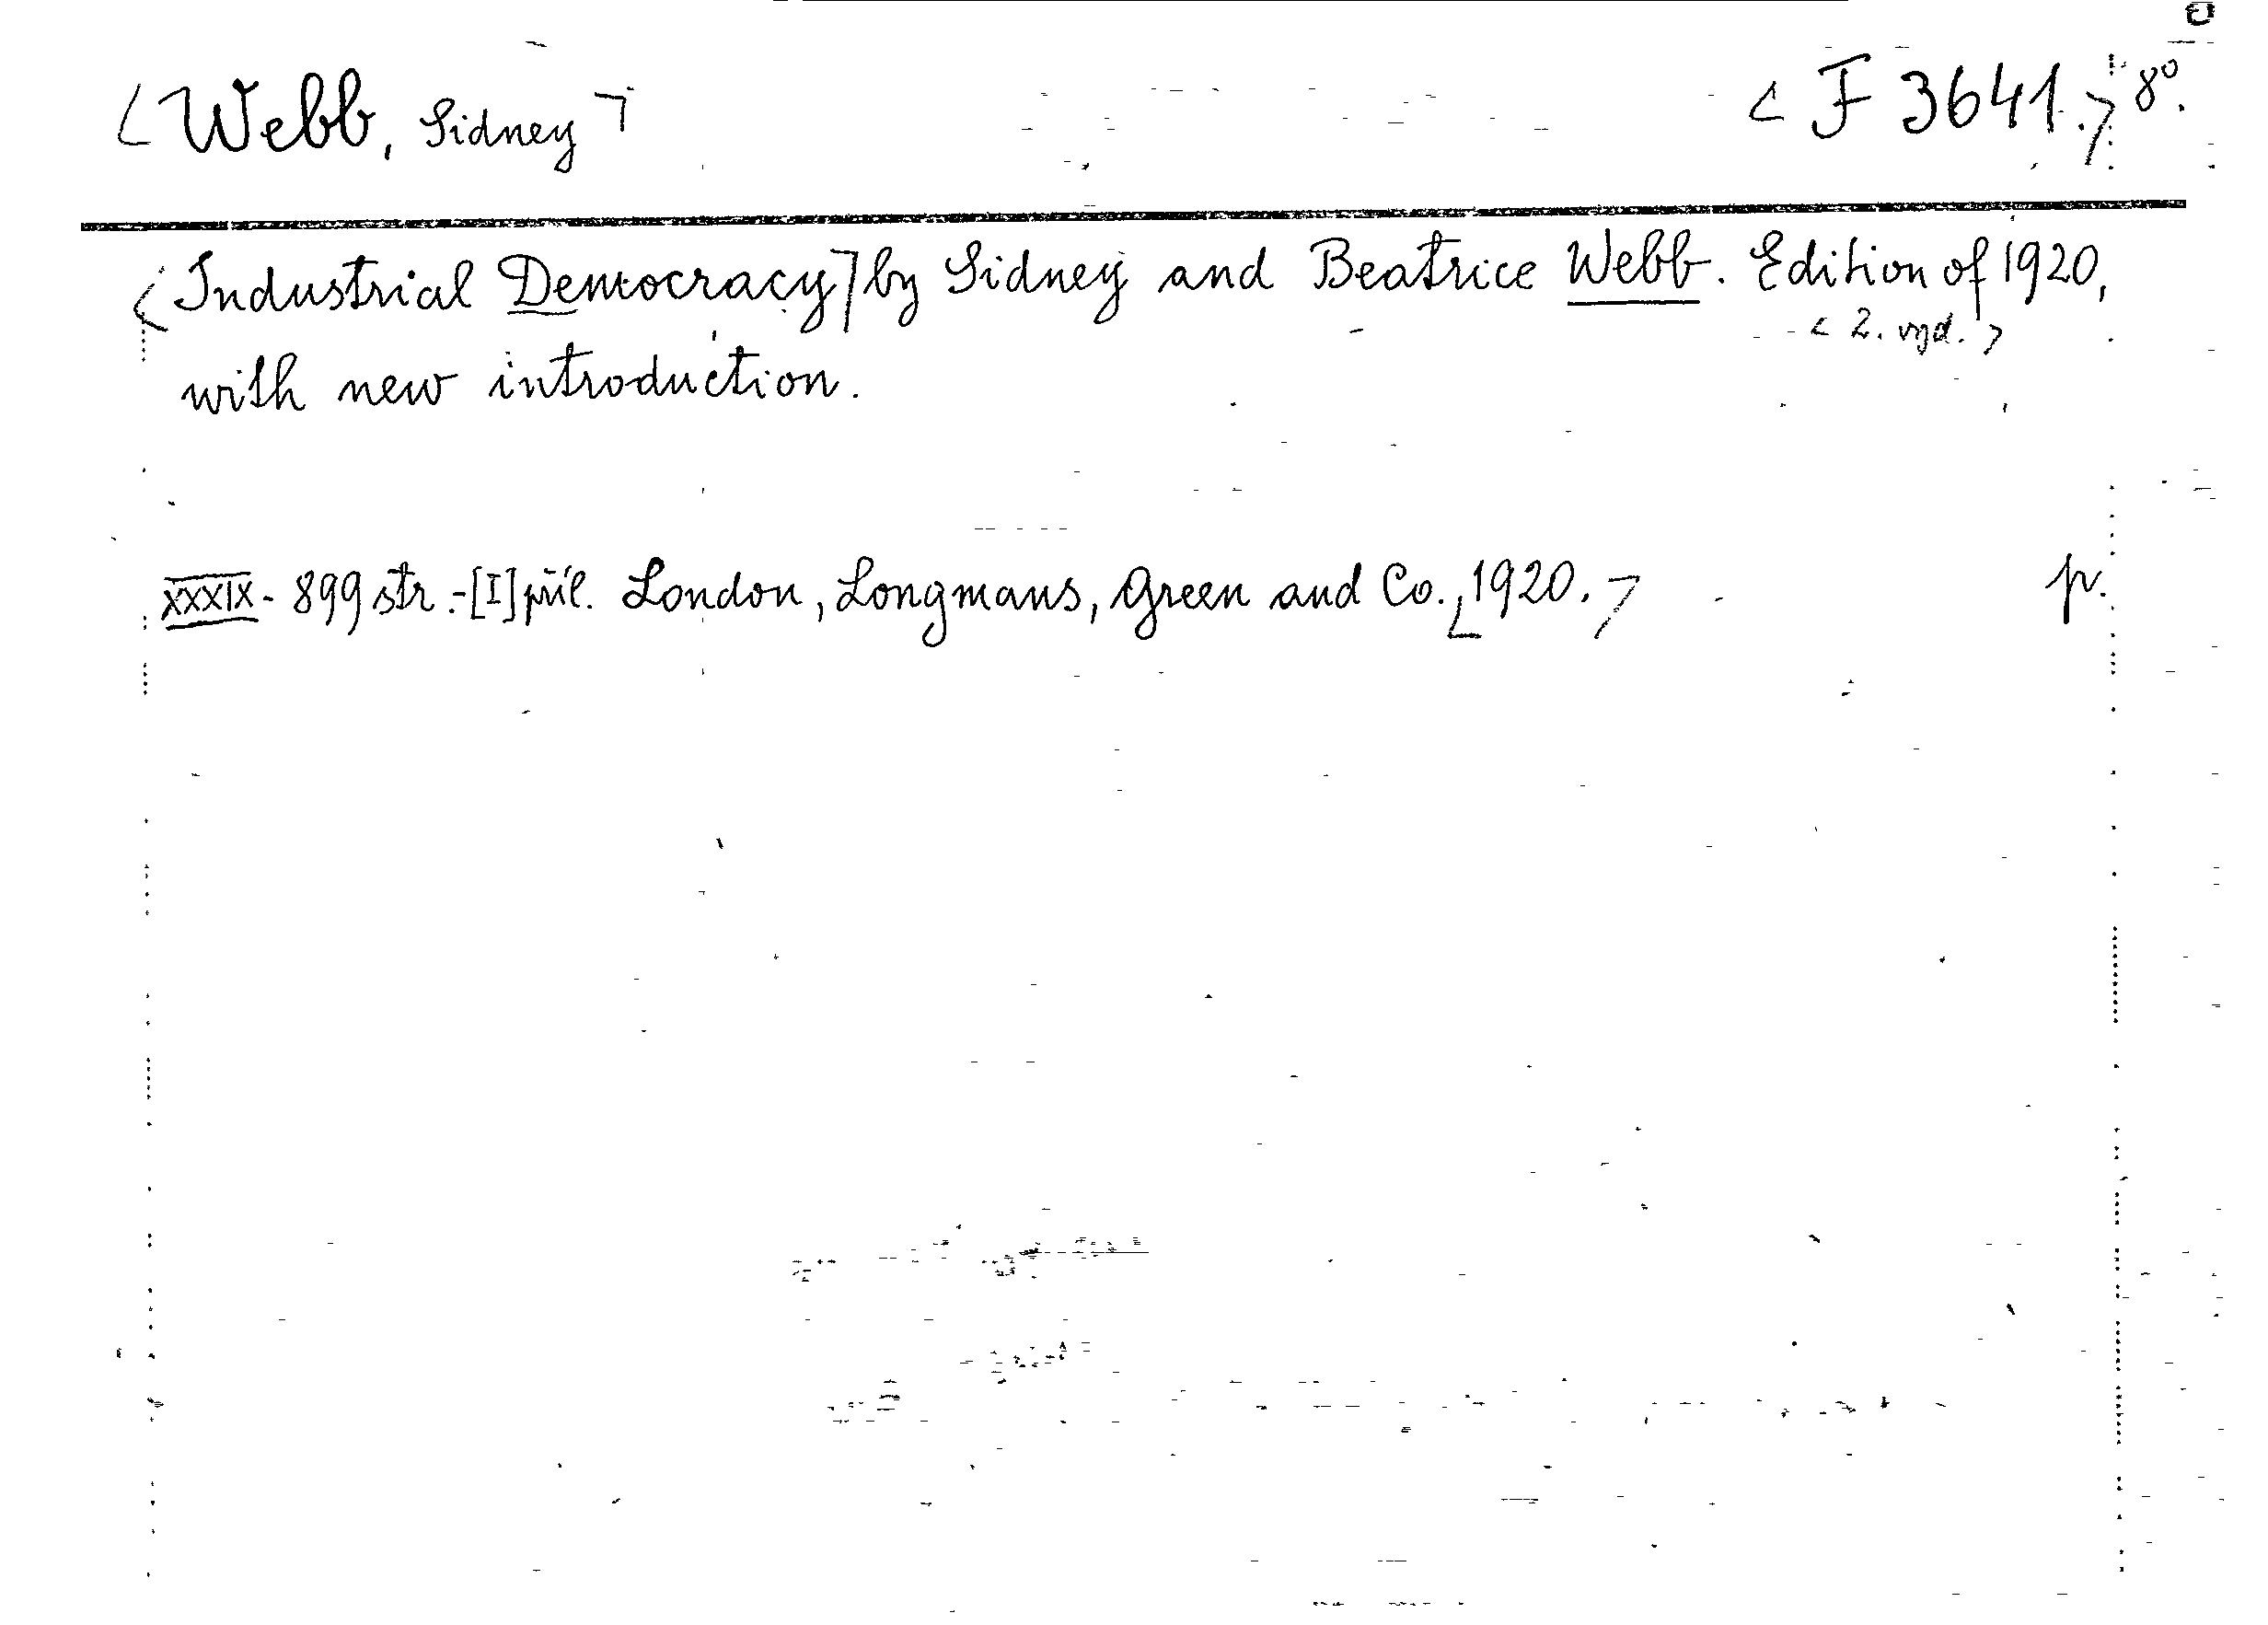 <Webb, Sidney> <F 3641.> 8°.
<Industrial Democracy> by Sidney and Beatrice Webb. Edition of 1920,
<2. vyd.>
with new introduction.
XXXIX - 899 str. - [I] příl. London, Longmans, Green and Co., <1920.> p.